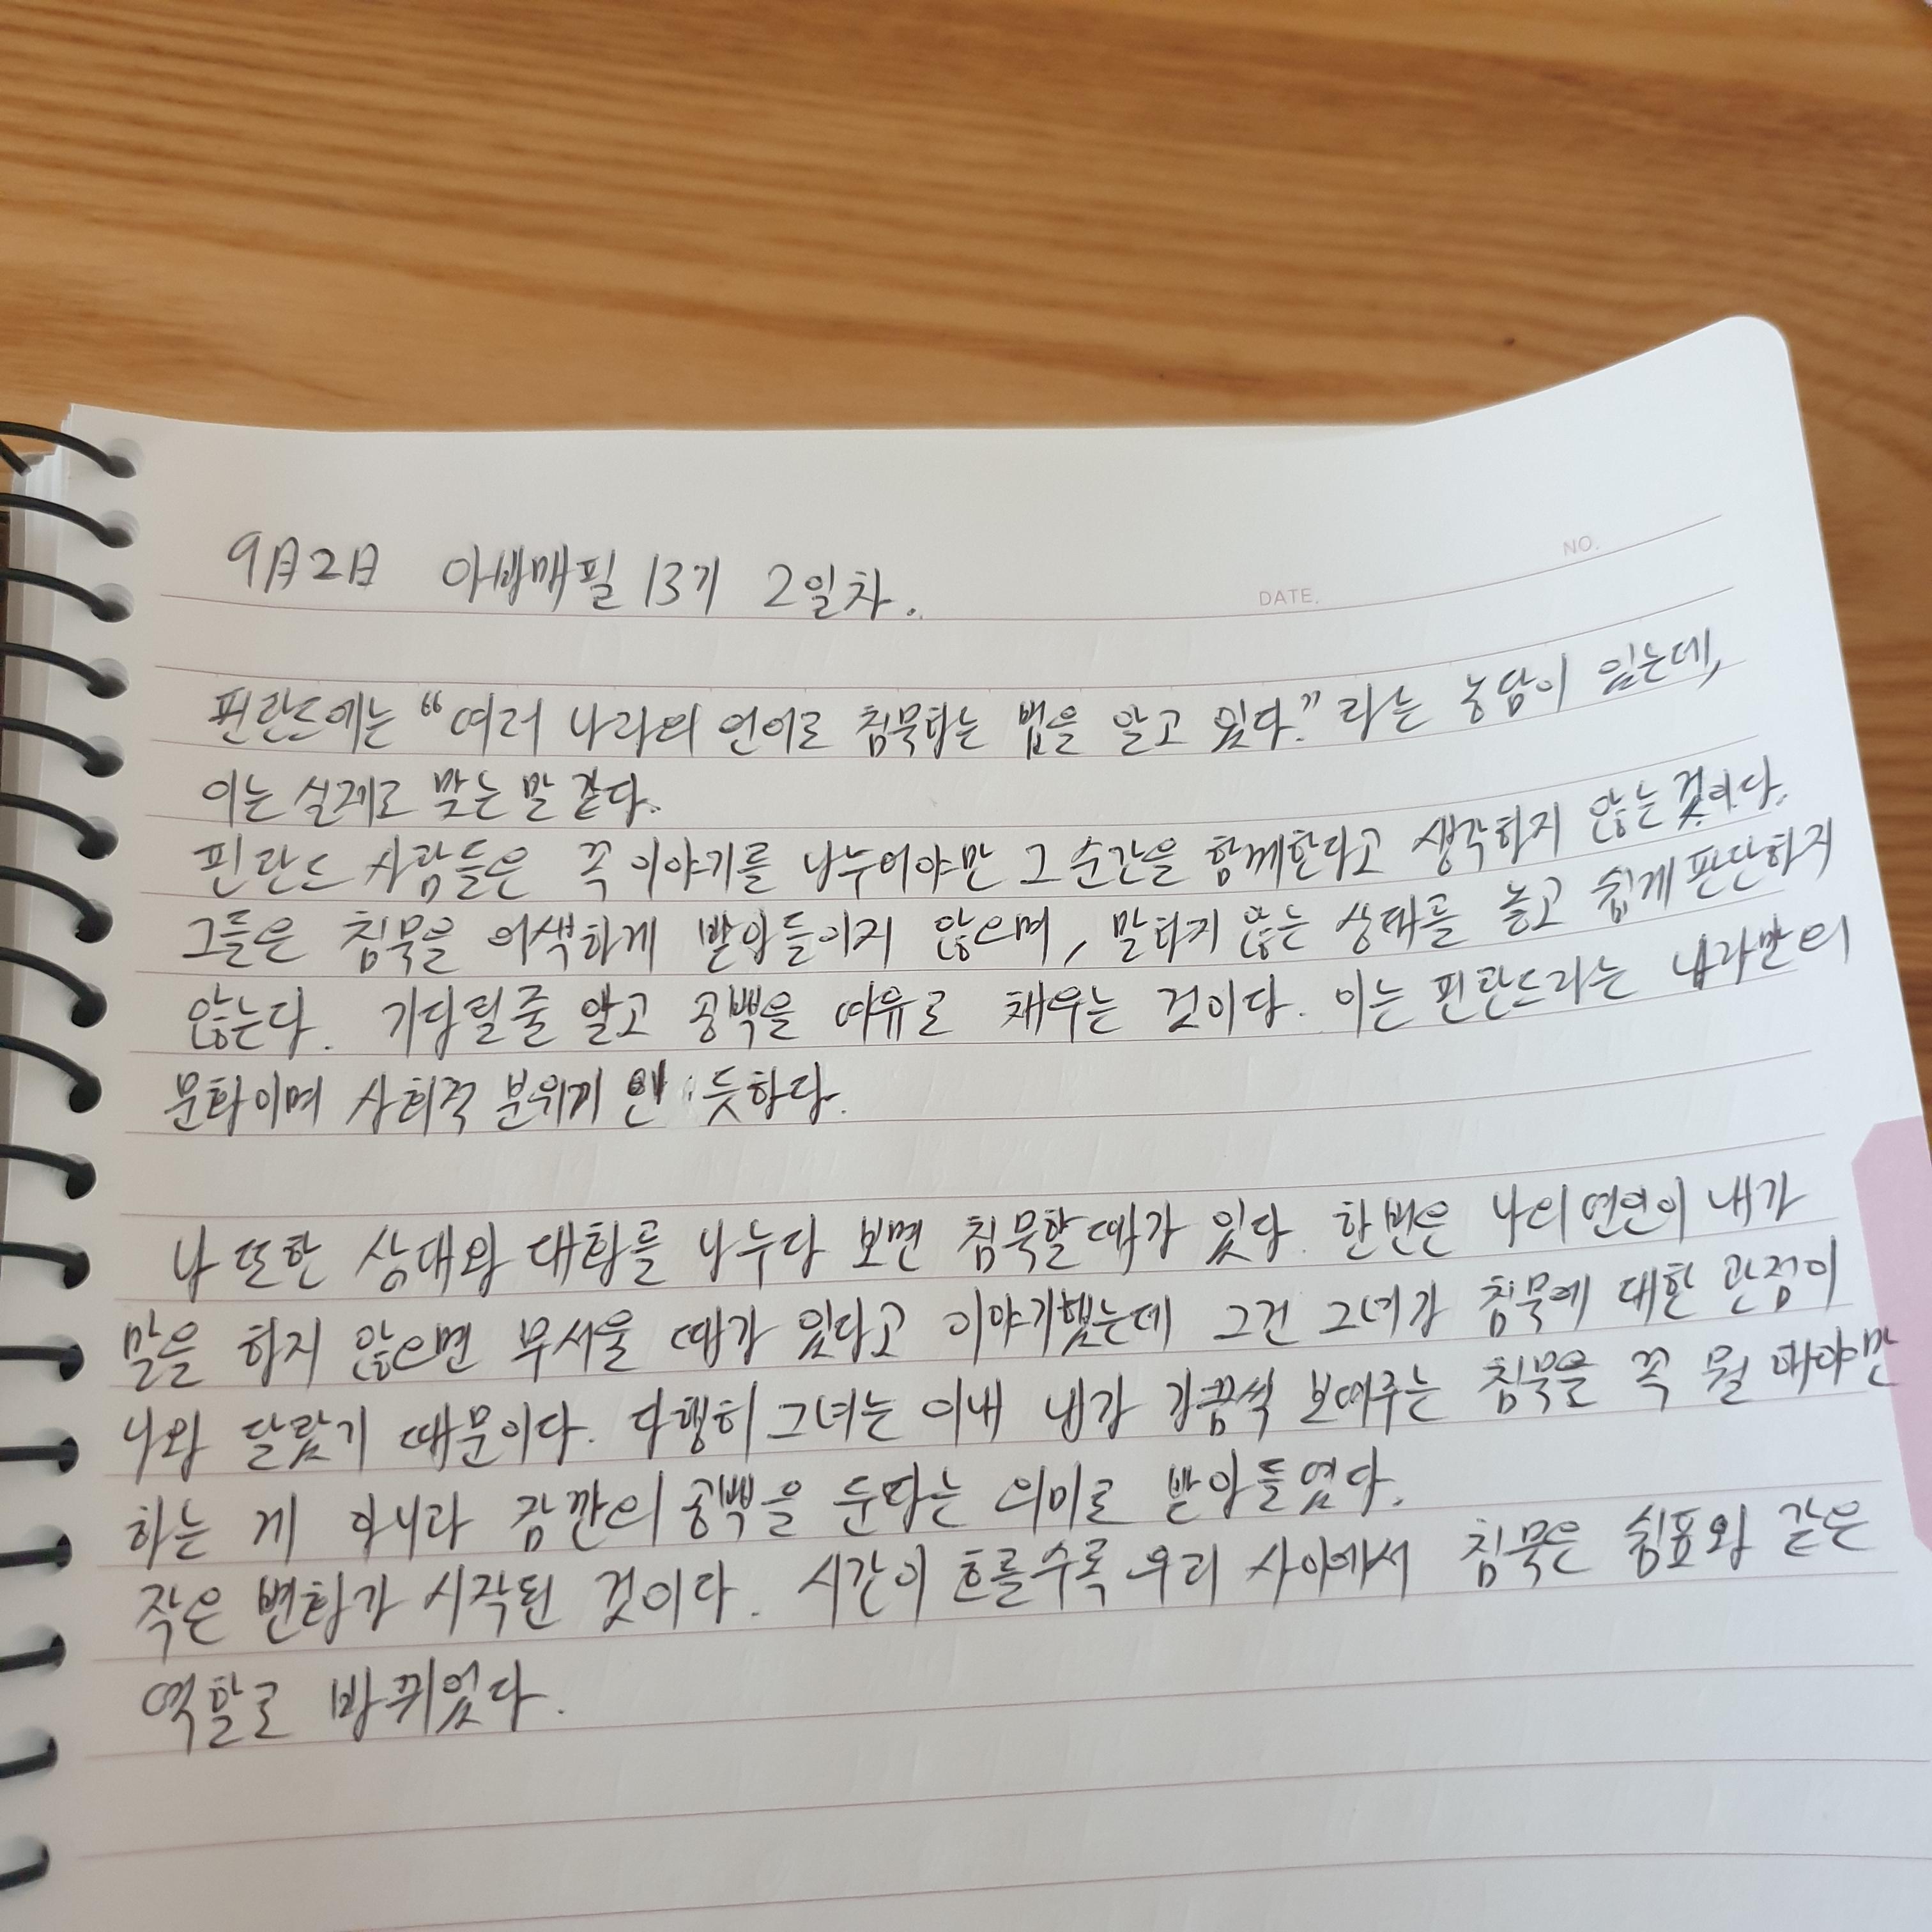 NO.
DATE.
9月2日 아바매필 13기 2일차.
핀란드에는 “여러 나라의 언어로 침묵하는 법을 알고 있다.”라는 농담이 있는데,
이는 실제로 맞는 말 같다.
핀란드 사람들은 꼭 이야기를 나누어야만 그 순간을 함께한다고 생각하지 않는 것이다.
그들은 침묵을 어색하게 받아들이지 않으며, 말하지 않는 상대를 놓고 쉽게 판단하지
않는다. 기다릴줄 알고 공백을 여유로 채우는 것이다. 이는 핀란드라는 나라만의
문화이며 사회적 분위기 인 듯하다.
나 또한 상대와 대화를 나누다 보면 침묵할때가 있다. 한번은 나의 연인이 내가
말을 하지 않으면 무서울 때가 있다고 이야기했는데 그건 그녀가 침묵에 대한 관점이
나와 달랐기 때문이다. 다행히 그녀는 이내 내가 가끔씩 보여주는 침묵을 꼭 뭘 해야만
하는 게 아니라 잠깐의 공백을 둔다는 의미로 받아들였다.
작은 변화가 시작된 것이다. 시간이 흐를수록 우리 사이에서 침묵은 쉼표와 같은
역할로 바뀌었다.